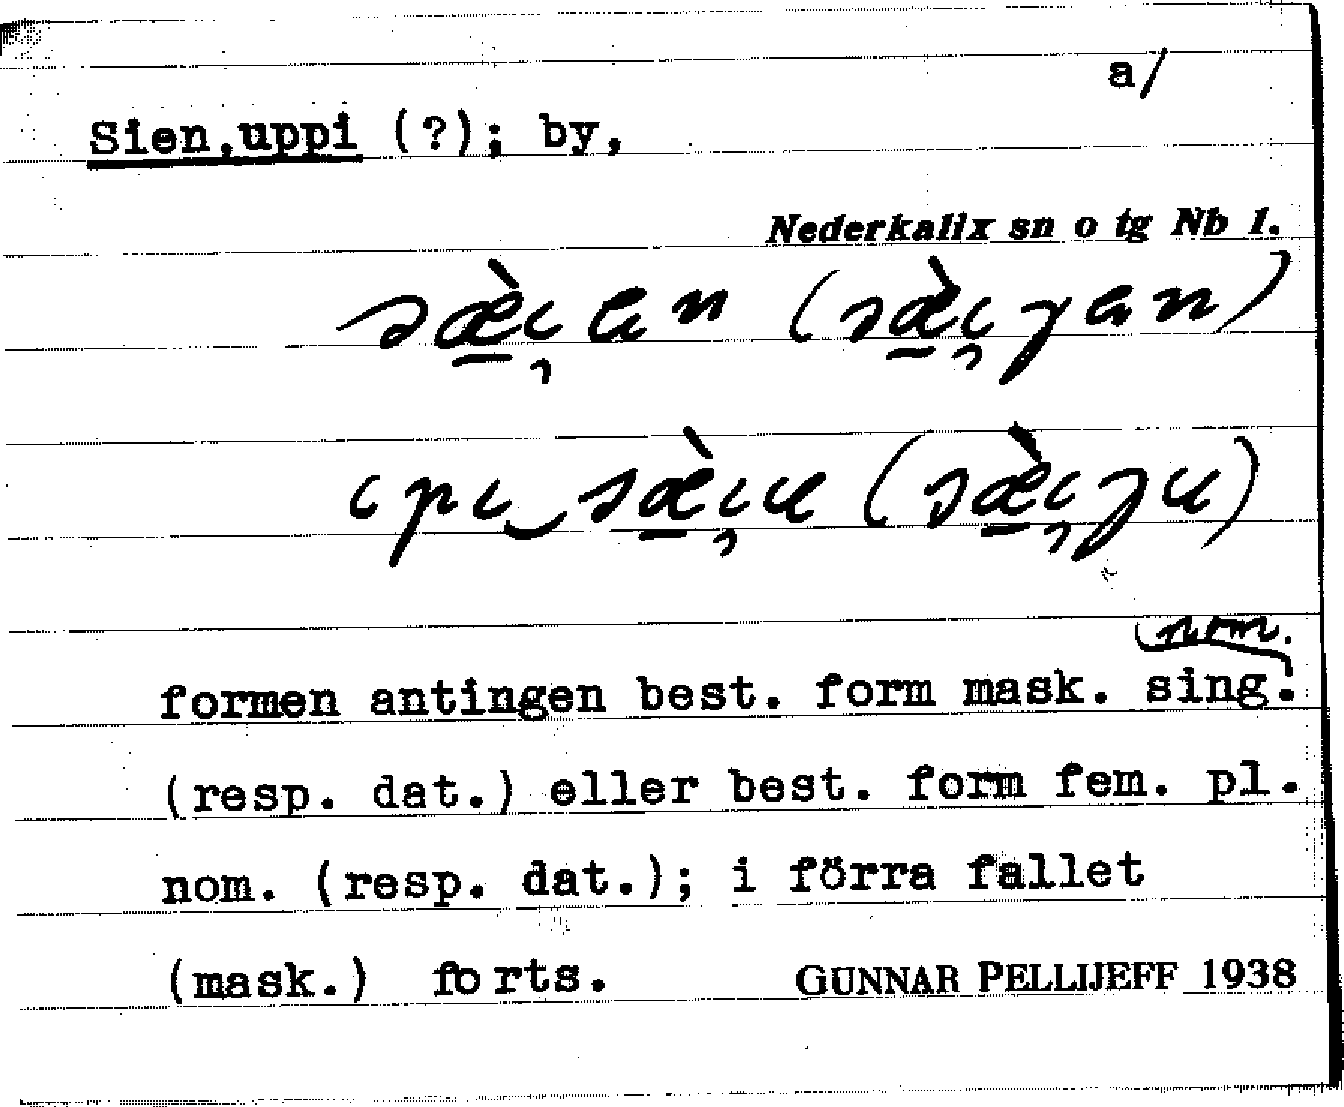 a/
Sien,uppi (?); by,
Nederkalix sn o tg Nb 1.
nom.
formen antingen best. form mask. sing.
(resp. dat.) eller best. form fem. pl.
nom. (resp. dat.); i förra fallet
(mask.) forts. GUNNAR PELLIJEFF 1938